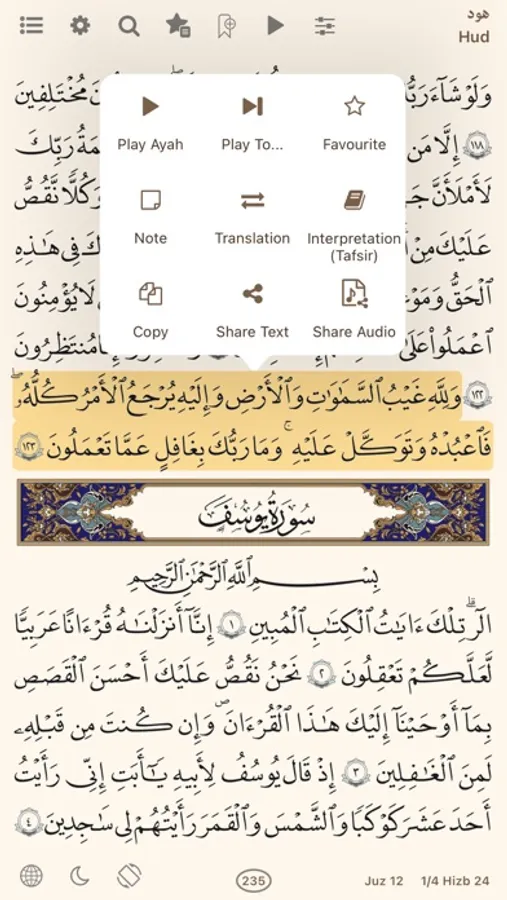 هود
Hud
وَلَوْ شَآءَ رَبُّ
مُخْتَلِفِينَ
١١٨ إِلَّا مَن
رَبِّكَ
لَأَمْلَأَنَّ
وَكُلًّا نَّقُصُّ
عَلَيْكَ مِنْ
فِى هَـٰذِهِ
ٱلْحَقُّ وَمَوْ
لَا يُؤْمِنُونَ
ٱعْمَلُوا۟ عَلَىٰ
مُنتَظِرُونَ
Play Ayah Play To... Favourite
Note Translation Interpretation
(Tafsir)
Copy Share Text Share Audio
١٢٢ وَلِلَّهِ غَيْبُ ٱلسَّمَـٰوَٰتِ وَٱلْأَرْضِ وَإِلَيْهِ يُرْجَعُ ٱلْأَمْرُ كُلُّهُۥ
فَٱعْبُدْهُ وَتَوَكَّلْ عَلَيْهِ ۚ وَمَا رَبُّكَ بِغَـٰفِلٍ عَمَّا تَعْمَلُونَ ١٢٣
سُورَةُ يُوسُفَ
بِسْمِ ٱللَّهِ ٱلرَّحْمَـٰنِ ٱلرَّحِيمِ
الٓر ۚ تِلْكَ ءَايَـٰتُ ٱلْكِتَـٰبِ ٱلْمُبِينِ ١ إِنَّآ أَنزَلْنَـٰهُ قُرْءَٰنًا عَرَبِيًّا
لَّعَلَّكُمْ تَعْقِلُونَ ٢ نَحْنُ نَقُصُّ عَلَيْكَ أَحْسَنَ ٱلْقَصَصِ
بِمَآ أَوْحَيْنَآ إِلَيْكَ هَـٰذَا ٱلْقُرْءَانَ وَإِن كُنتَ مِن قَبْلِهِۦ
لَمِنَ ٱلْغَـٰفِلِينَ ٣ إِذْ قَالَ يُوسُفُ لِأَبِيهِ يَـٰٓأَبَتِ إِنِّى رَأَيْتُ
أَحَدَ عَشَرَ كَوْكَبًا وَٱلشَّمْسَ وَٱلْقَمَرَ رَأَيْتُهُمْ لِى سَـٰجِدِينَ ٤
235 Juz 12 1/4 Hizb 24